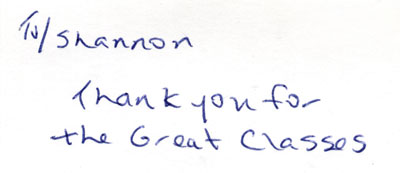 To/Shannon
Thank you for
the Great Classes